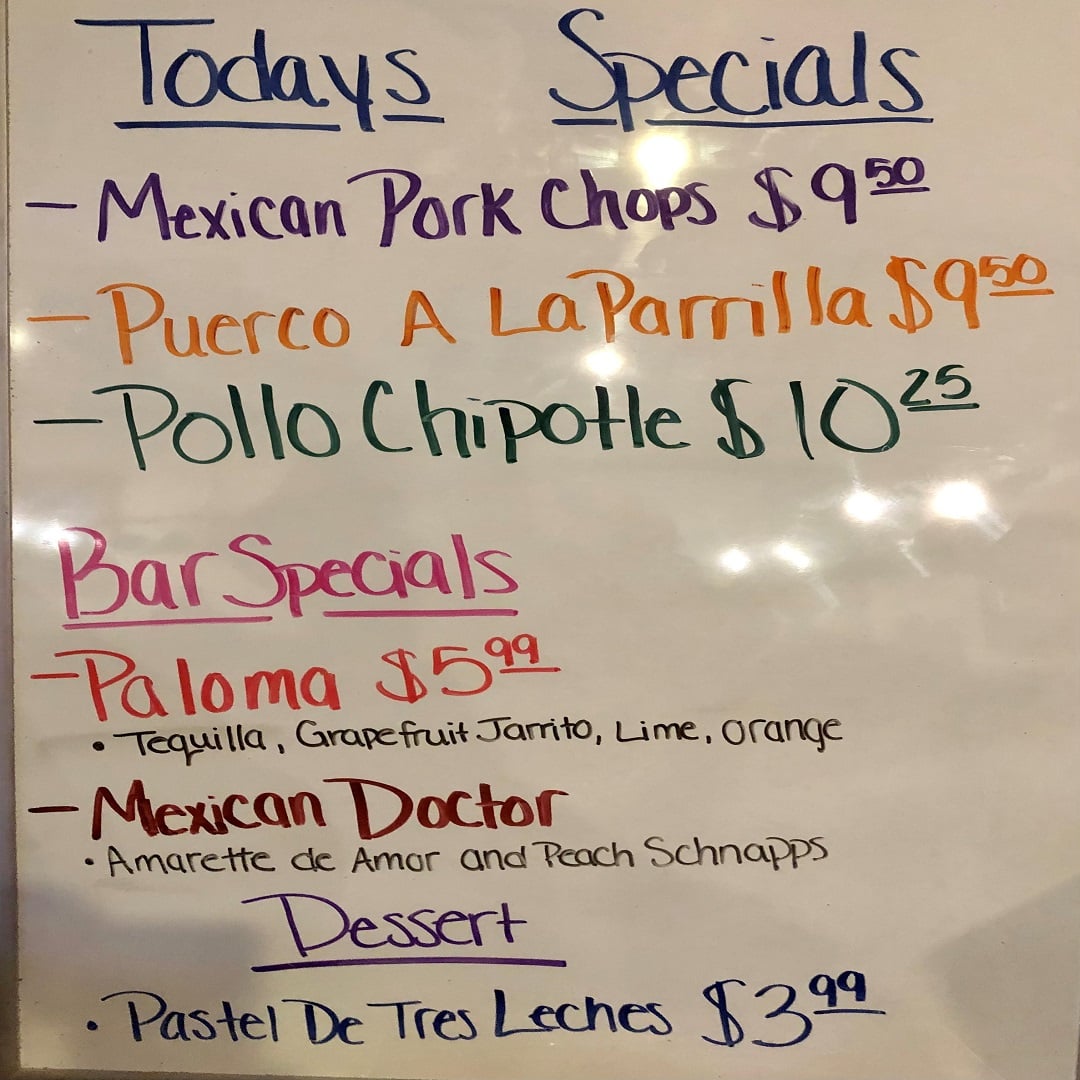 Todays Specials
- Mexican Pork Chops $9 50
- Puerco A La Parrilla $9 50
- Pollo Chipotle $10 25
Bar Specials
- Paloma $5 99
• Tequilla, Grapefruit Jarrito, Lime, orange
- Mexican Doctor
• Amarette de Amor and Peach Schnapps
Dessert
• Pastel De Tres Leches $3 99